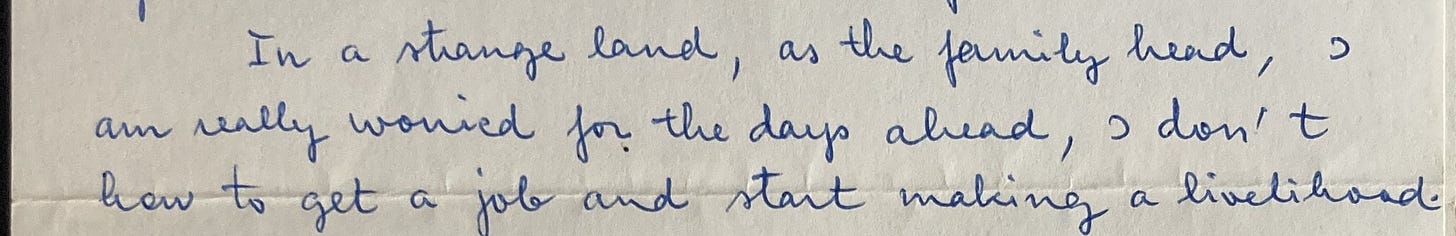 In a strange land, as the family head, I
am really worried for the days ahead, I don't
how to get a job and start making a livelihood.